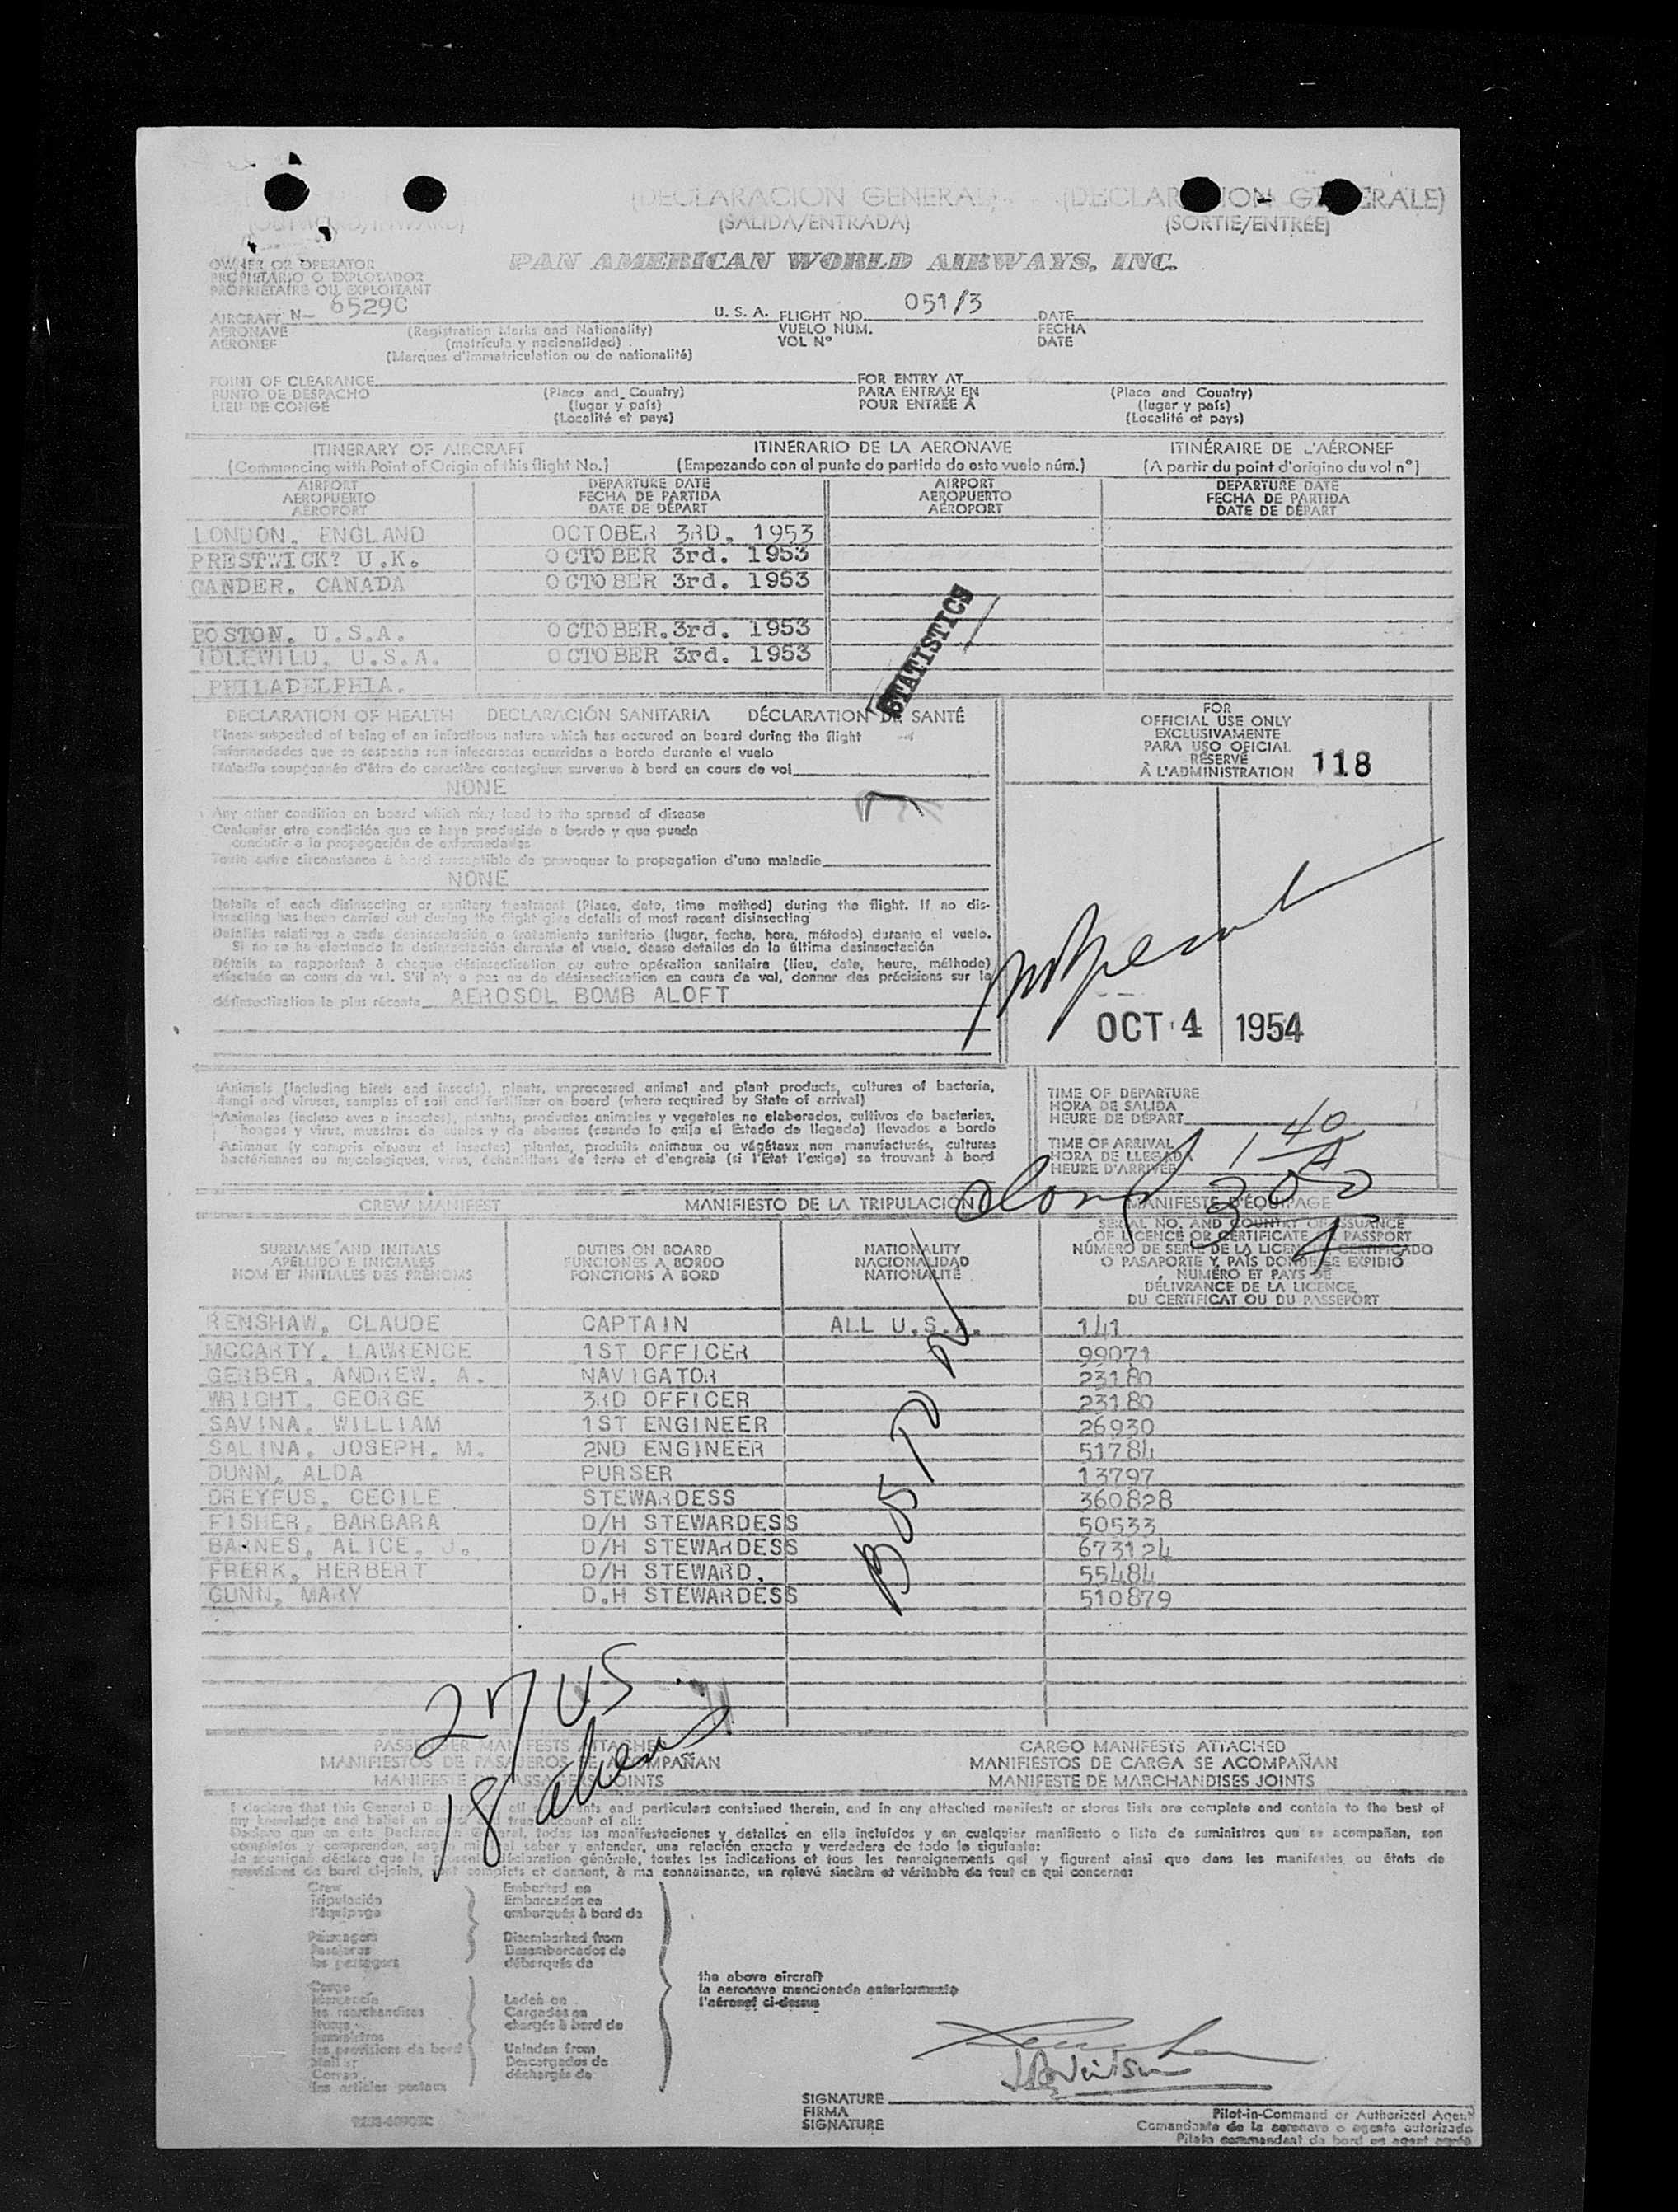 (DECLARACION GENERAL)
(SALIDA/ENTRADA)
(SORTIE/ENTRÉE)
OWNER OR OPERATOR
PROPIETARIO O EXPLOTADOR
PROPRIÉTAIRE OU EXPLOITANT
PAN AMERICAN WORLD AIRWAYS, INC.
AIRCRAFT N- 6529C U. S. A. FLIGHT NO. 051/3 DATE
AERONAVE (Registration Marks and Nationality) VUELO NÚM. FECHA
AÉRONEF (matrícula y nacionalidad) VOL Nº DATE
(Marques d'immatriculation ou de nationalité)
POINT OF CLEARANCE (Place and Country) FOR ENTRY AT (Place and Country)
PUNTO DE DESPACHO (lugar y país) PARA ENTRAR EN (lugar y país)
LIEU DE CONGÉ (Localité et pays) POUR ENTRÉE À (Localité et pays)
ITINERARY OF AIRCRAFT ITINERARIO DE LA AERONAVE ITINÉRAIRE DE L'AÉRONEF
(Commencing with Point of Origin of this flight No.) (Empezando con el punto de partida de este vuelo núm.) (A partir du point d'origine du vol nº)
AIRPORT DEPARTURE DATE AIRPORT DEPARTURE DATE
AEROPUERTO FECHA DE PARTIDA AEROPUERTO FECHA DE PARTIDA
AÉROPORT DATE DE DÉPART AÉROPORT DATE DE DÉPART
LONDON. ENGLAND OCTOBER 3RD. 1953
PRESTWICK? U.K. OCTOBER 3rd. 1953
GANDER. CANADA OCTOBER 3rd. 1953
BOSTON. U.S.A. OCTOBER.3rd. 1953
IDLEWILD. U.S.A. OCTOBER 3rd. 1953
PHILADELPHIA.
STATISTICS
DECLARATION OF HEALTH DECLARACIÓN SANITARIA DÉCLARATION DE SANTÉ
Illness suspected of being of an infectious nature which has occured on board during the flight
Enfermedades que se sospecha son infecciosas ocurridas a bordo durante el vuelo
Maladie soupçonnée d'être de caractère contagieux survenue à bord en cours de vol
NONE
FOR
OFFICIAL USE ONLY
EXCLUSIVAMENTE
PARA USO OFICIAL
RÉSERVÉ
À L'ADMINISTRATION 118
Any other condition on board which may lead to the spread of disease
Cualquier otra condición que se haya producido a bordo y que pueda
conducir a la propagación de enfermedades
Toute autre circonstance à bord susceptible de provoquer la propagation d'une maladie
NONE
Details of each disinsecting or sanitary treatment (Place, date, time method) during the flight. If no dis-
insecting has been carried out during the flight give details of most recent disinsecting
Detalles relativos a cada desinsectación o tratamiento sanitario (lugar, fecha, hora, método) durante el vuelo.
Si no se ha efectuado la desinsectación durante el vuelo, dense detalles de la última desinsectación
Détails se rapportant à chaque désinsectisation ou autre opération sanitaire (lieu, date, heure, méthode)
effectuée en cours de vol. S'il n'y a pas eu de désinsectisation en cours de vol, donner des précisions sur la
désinsectisation la plus récente AEROSOL BOMB ALOFT
OCT 4 1954
Animals (including birds and insects), plants, unprocessed animal and plant products, cultures of bacteria,
fungi and viruses, samples of soil and fertilizer on board (where required by State of arrival)
Animales (incluso aves e insectos), plantas, productos animales y vegetales no elaborados, cultivos de bacterias,
hongos y virus, muestras de suelos y de abonos (cuando lo exija el Estado de llegada) llevados a bordo
Animaux (y compris oiseaux et insectes) plantes, produits animaux ou végétaux non manufacturés, cultures
bactériennes ou mycologiques, virus, échantillons de terre et d'engrais (si l'Etat l'exige) se trouvant à bord
TIME OF DEPARTURE
HORA DE SALIDA
HEURE DE DÉPART
TIME OF ARRIVAL
HORA DE LLEGADA
HEURE D'ARRIVÉE
1 40 A
CREW MANIFEST MANIFIESTO DE LA TRIPULACION MANIFESTE D'ÉQUIPAGE
SURNAME AND INITIALS DUTIES ON BOARD NATIONALITY
APELLIDO E INICIALES FUNCIONES A BORDO NACIONALIDAD
NOM ET INITIALES DES PRÉNOMS FONCTIONS À BORD NATIONALITÉ
SERIAL NO. AND COUNTRY OF ISSUANCE
OF LICENCE OR CERTIFICATE PASSPORT
NÚMERO DE SERIE DE LA LICENCIA CERTIFICADO
O PASAPORTE Y PAÍS DONDE SE EXPIDIO
NUMÉRO ET PAYS DE
DÉLIVRANCE DE LA LICENCE,
DU CERTIFICAT OU DU PASSEPORT
RENSHAW, CLAUDE CAPTAIN ALL U.S.A. 141
MCCARTY, LAWRENCE 1ST OFFICER 99071
GERBER, ANDREW, A. NAVIGATOR 23180
WRIGHT, GEORGE 3RD OFFICER 23180
SAVINA, WILLIAM 1ST ENGINEER 26930
SALINA, JOSEPH, M. 2ND ENGINEER 51784
DUNN, ALDA PURSER 13797
DREYFUS, CECILE STEWARDESS 360828
FISHER, BARBARA D/H STEWARDESS 50533
BARNES, ALICE, J. D/H STEWARDESS 673124
FRERK, HERBERT D/H STEWARD. 55484
GUNN, MARY D.H STEWARDESS 510879
BOSTON
27 US
18 aliens
PASSENGER MANIFESTS ATTACHED CARGO MANIFESTS ATTACHED
MANIFIESTOS DE PASAJEROS SE ACOMPAÑAN MANIFIESTOS DE CARGA SE ACOMPAÑAN
MANIFESTE DE PASSAGERS JOINTS MANIFESTE DE MARCHANDISES JOINTS
I declare that this General Declaration, all statements and particulars contained therein, and in any attached manifests or stores lists are complete and contain to the best of
my knowledge and belief an exact and true account of all:
Declaro que en esta Declaración General, todas las manifestaciones y detalles en ella incluídos y en cualquier manifiesto o lista de suministros que se acompañan, son
completos y comprenden, según mi leal saber y entender, una relación exacta y verdadera de todo lo siguiente:
Je soussigné déclare que la présente déclaration générale, toutes les indications et tous les renseignements qui y figurent ainsi que dans les manifestes ou états de
provisions de bord ci-joints, sont complets et donnent, à ma connaissance, un relevé sincère et véritable de tout ce qui concerne:
Crew Embarked on
Tripulación Embarcados en
l'équipage embarqués à bord de
Passengers Disembarked from
Pasajeros Desembarcados de
les passagers débarqués de
the above aircraft
la aeronave mencionada anteriormente
l'aéronef ci-dessus
Cargo
Mercancía Laden on
les marchandises Cargados en
Stores chargés à bord de
Suministros
les provisions de bord Unladen from
Mail Descargados de
Correo déchargés de
les articles postaux
SIGNATURE
FIRMA
SIGNATURE
Pilot-in-Command or Authorized Agent
Comandante de la aeronave o agente autorizado
Pilote commandant de bord ou agent agréé